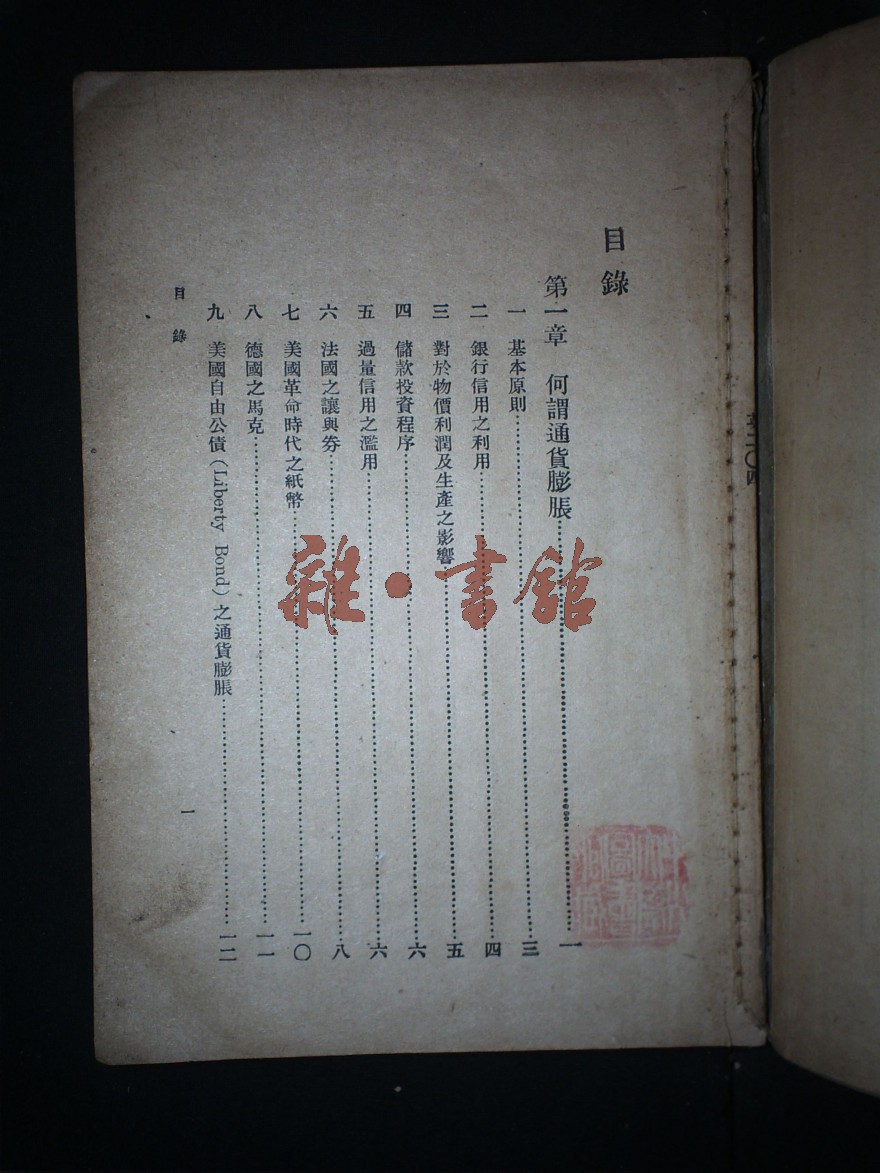 目錄
第一章　何謂通貨膨脹……一
一　基本原則……三
二　銀行信用之利用……四
三　對於物價利潤及生產之影響……五
四　儲款投資程序……六
五　過量信用之濫用……六
六　法國之讓與劵……八
七　美國革命時代之紙幣……一〇
八　德國之馬克……一一
九　美國自由公債（Liberty Bond）之通貨膨脹……一二
目錄
一
雜·書館